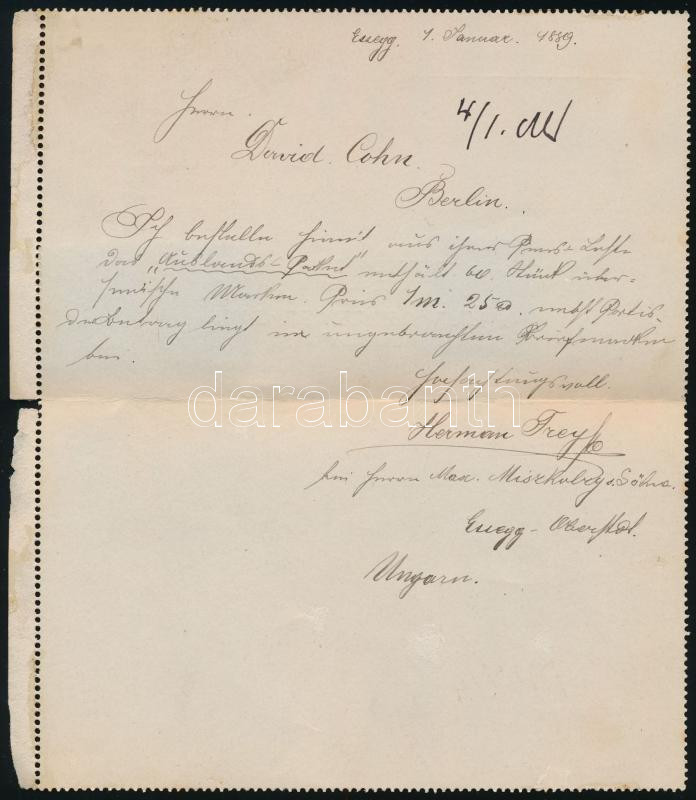 Essegg. 1. Januar. 1889.
Herrn.
4/1.
David Cohn.
Berlin.
Ich bestelle hiemit, aus ihrer Preis-Liste
das „Auslands-Packet" enthält 60. Stück über-
seeische Marken. Preis 1 M. 25 nebst Porto.
der Betrag liegt in ungebrauchten Briefmarken
bei.
Hochachtungsvoll.
darabanth
Herman
bei Herrn Max. Miszkolczy u. Söhne.
Essegg-Oberstdt.
Ungarn.